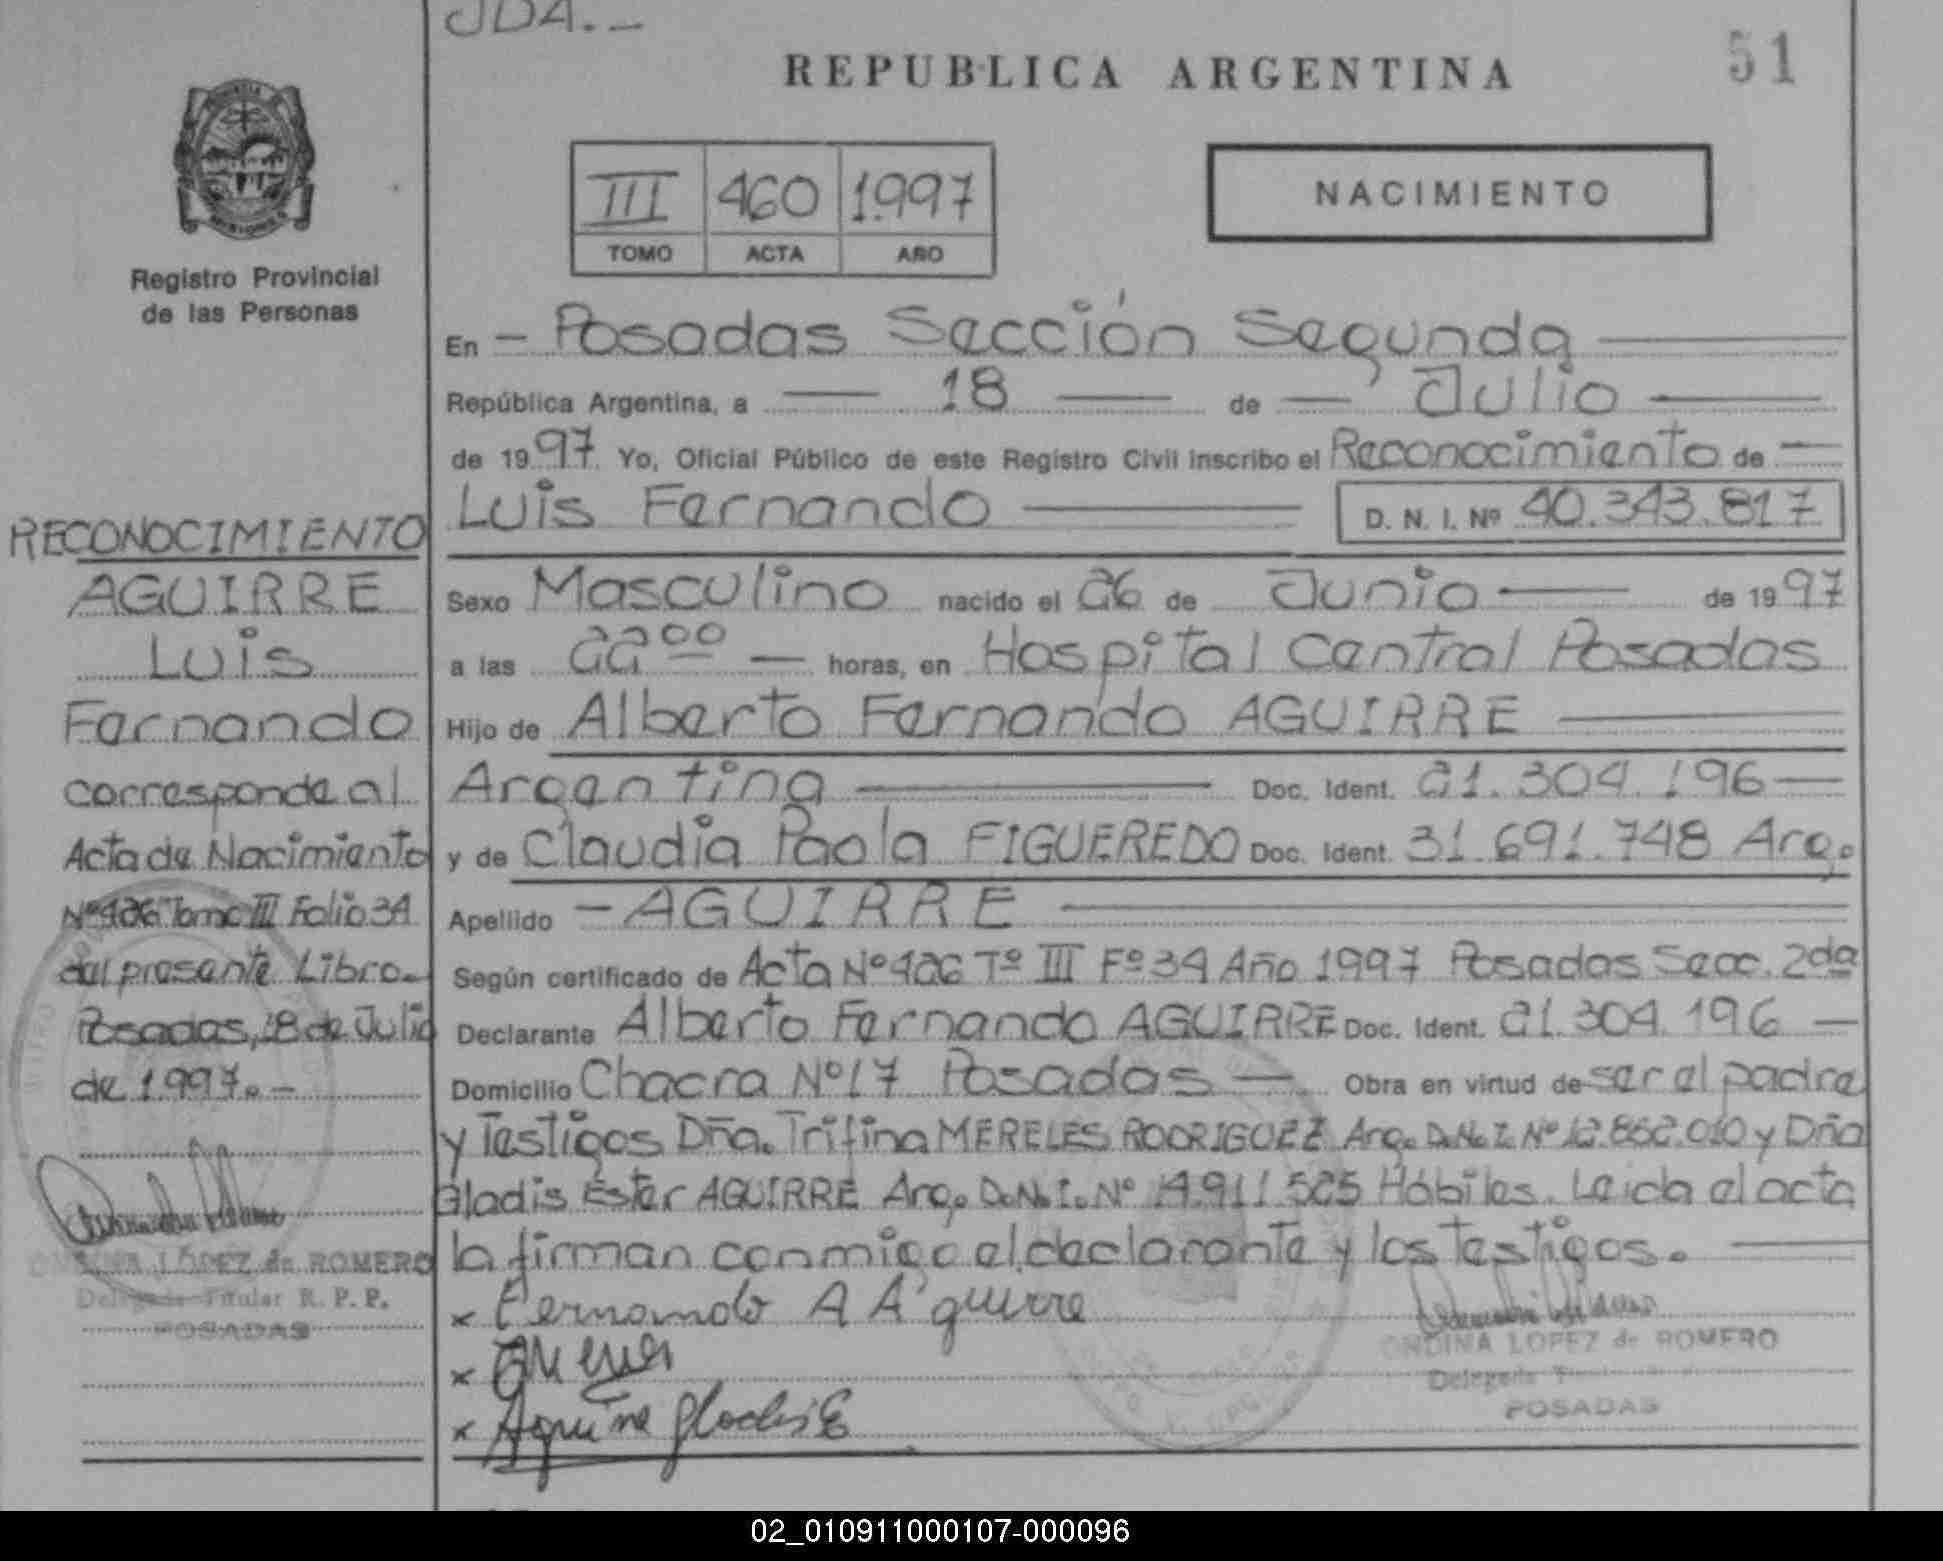 JDA.-
REPUBLICA ARGENTINA
51
Registro Provincial
de las Personas
III 460 1.997
TOMO ACTA AÑO
NACIMIENTO
En - Posadas Sección Segunda
República Argentina, a 18 de Julio
de 1997. Yo, Oficial Público de este Registro Civil inscribo el Reconocimiento de
Luis Fernando D. N. I. Nº 40.343.817
Sexo Masculino nacido el 26 de Junio de 1997
a las 22⁰⁰ horas, en Hospital Central Posadas
Hijo de Alberto Fernando AGUIRRE
Argentina Doc. Ident. 21.304.196
y de Claudia Paola FIGUEREDO Doc. Ident. 31.691.748 Arg.
Apellido - AGUIRRE
Según certificado de Acta Nº 426 Tº III Fº 34 Año 1997 Posadas Secc. 2da
Declarante Alberto Fernando AGUIRRE Doc. Ident. 21.304.196
Domicilio Chacra Nº 17 Posadas Obra en virtud de ser el padre
y Testigos Dña. Trifina MERELES RODRIGUEZ Arg. D.N.I. Nº 12.862.010 y Dña
Gladis Ester AGUIRRE Arg. D.N.I. Nº 14.911.525 Hábiles. Leida el acta
la firman conmigo el declarante y los testigos.
x Fernando A Aguirre
x
x Aguirre Gladis E
ONDINA LOPEZ de ROMERO
Delegada Titular
POSADAS
RECONOCIMIENTO
AGUIRRE
Luis
Fernando
corresponde al
Acta de Nacimiento
Nº 426 Tomo III Folio 34
del presente Libro.-
Posadas, 18 de Julio
de 1.997.-
ONDINA LÓPEZ de ROMERO
Delegada Titular R. P. P.
POSADAS
02_010911000107-000096